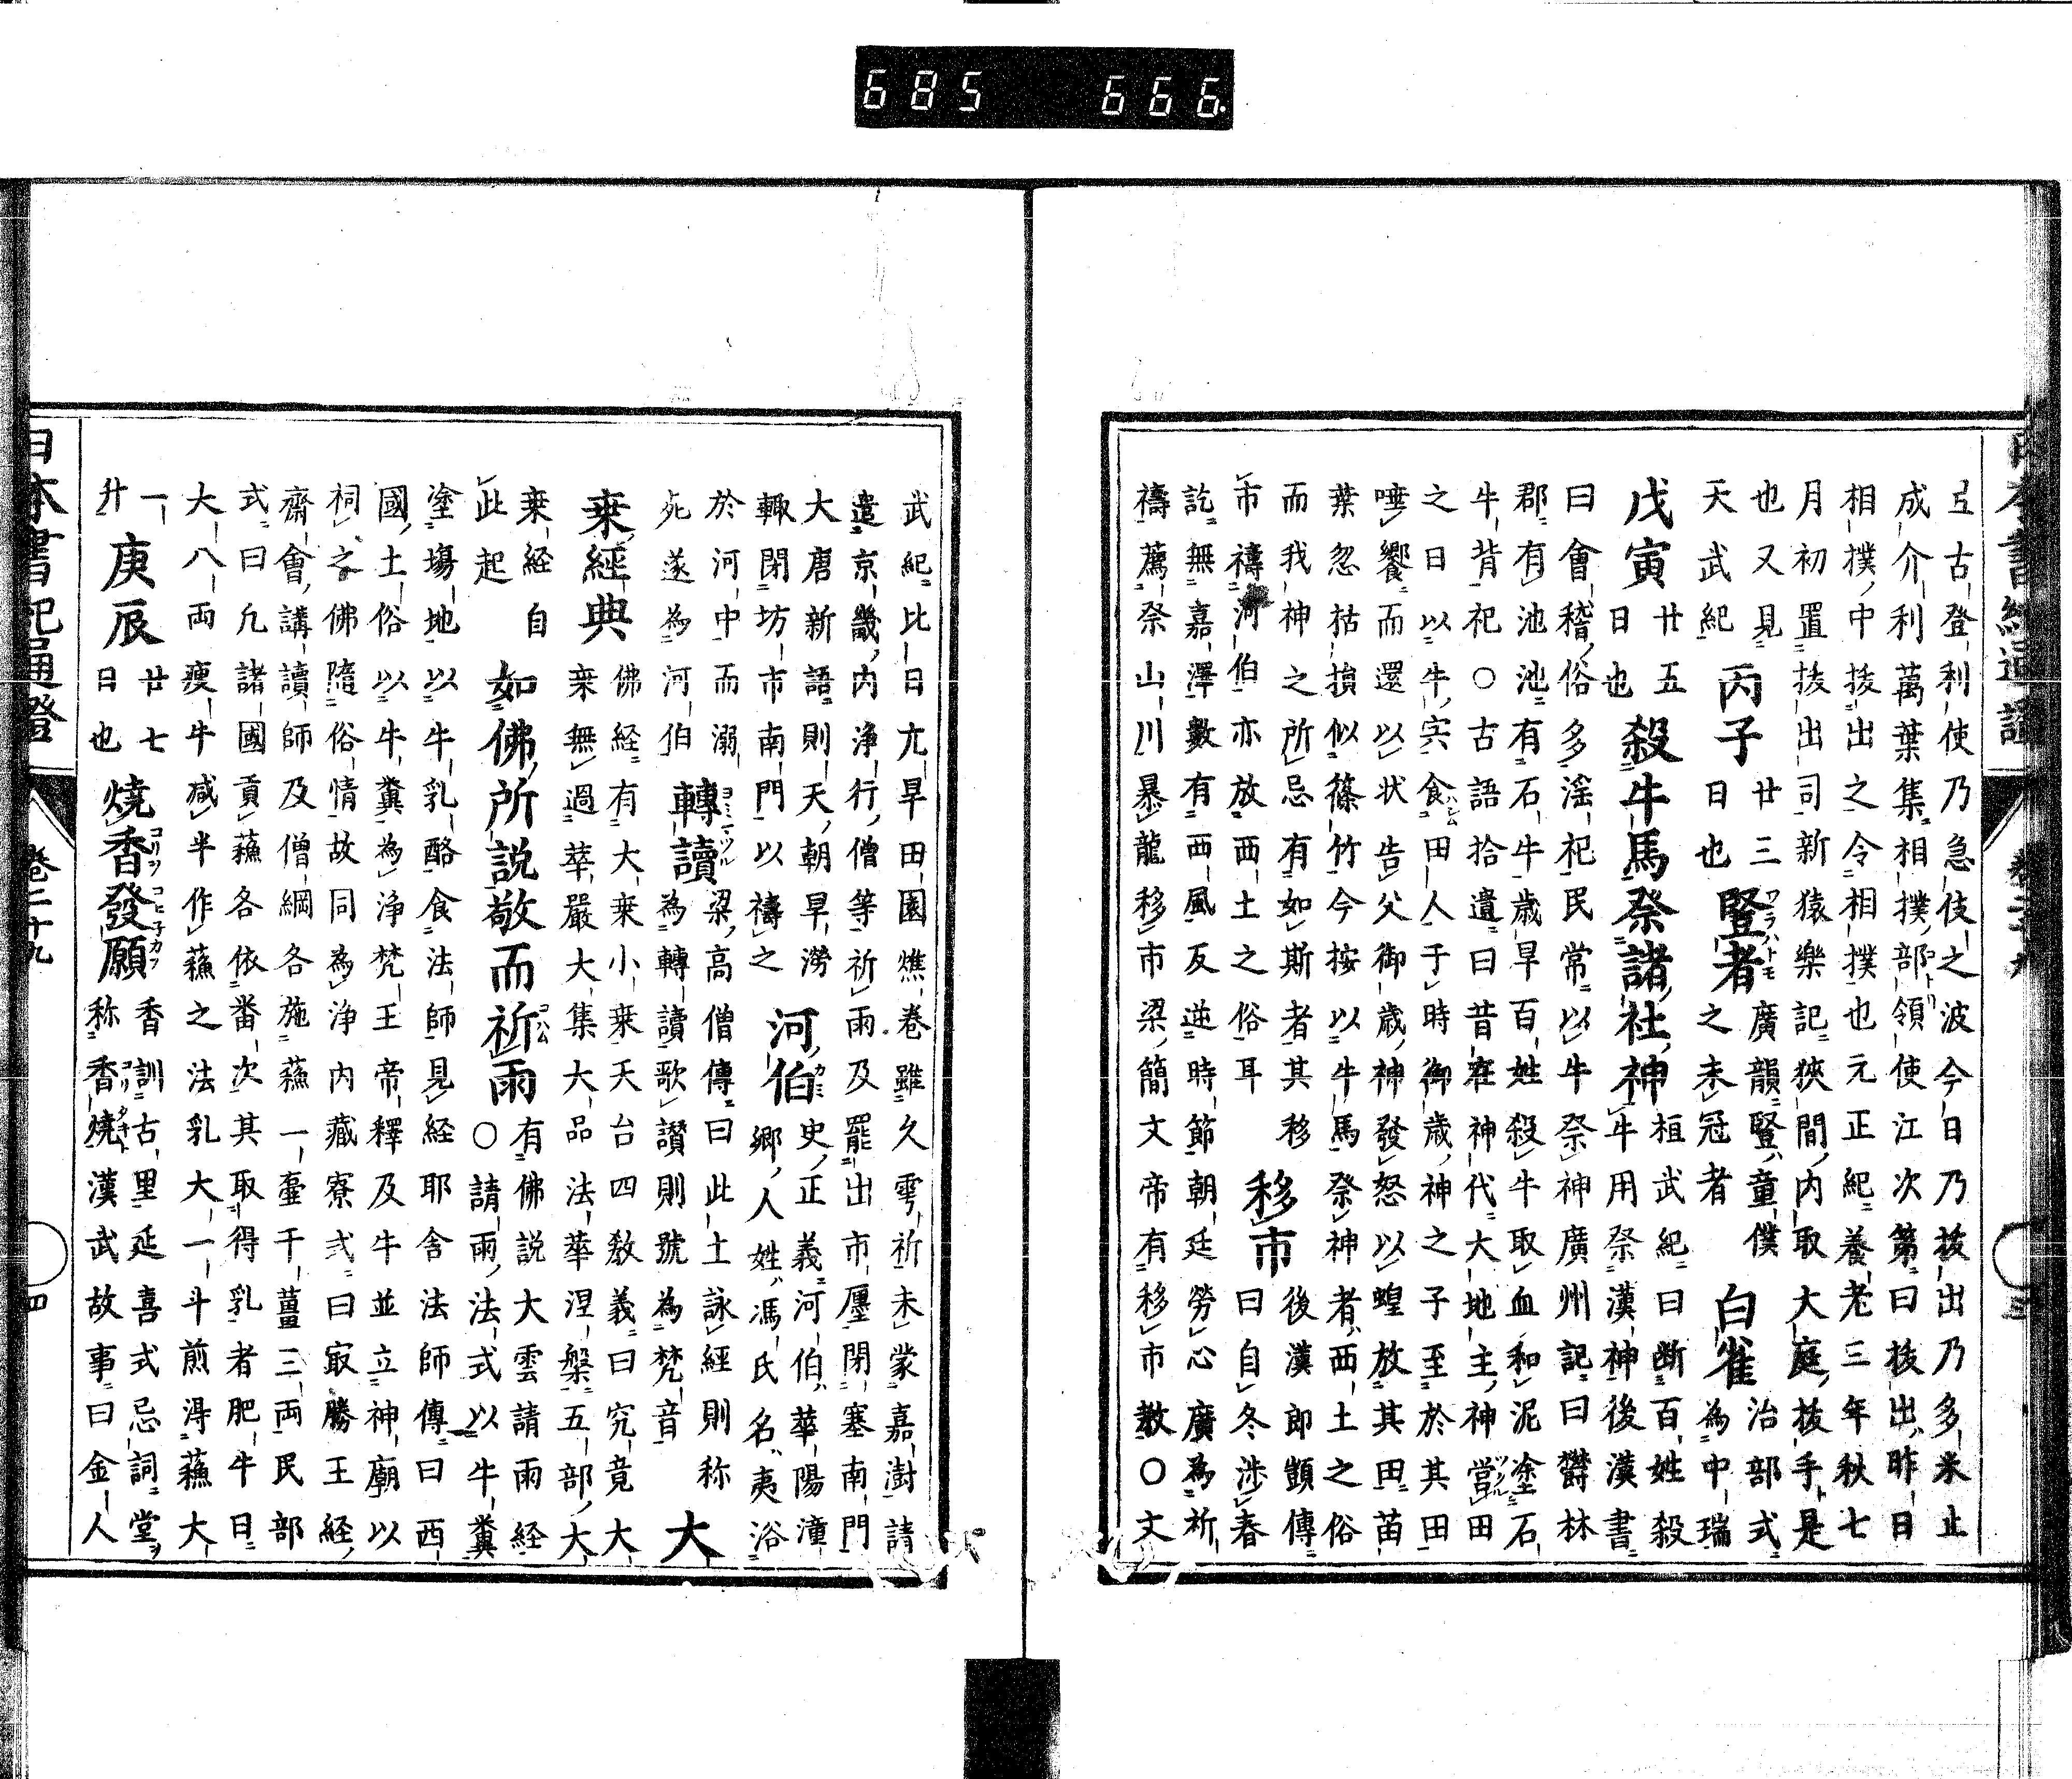 日本書紀通證 卷二十九 三
互古登利使乃急伎之波今日乃抜出乃多米止
成介利萬葉集相撲部領使江次第曰抜出昨日
相撲中抜出之令相撲也元正紀養老三年秋七
月初置抜出司新猿樂記狹間内取大庭抜手是
也又見天武紀 丙子 廿三日也 豎者 廣韻豎童僕之未冠者 白雀 治部式為中瑞
戊寅 廿五日也 殺牛馬祭諸社神 桓武紀曰断百姓殺牛用祭漢神後漢書
曰會稽俗多淫祀民常以牛祭神廣州記曰欝林
郡有池池有石牛歳旱百姓殺牛取血和泥塗石
牛背祀〇古語拾遺曰昔在神代大地主神營田
之日以牛宍食田人于時御歳神之子至於其田
唾饗而還以状告父御歳神發怒以蝗放其田苗
葉忽枯損似篠竹今按以牛馬祭神者西土之俗
而我神之所忌有如斯者其移市禱河伯亦放西土之俗耳 移市 後漢郎顗傳曰自冬渉春
訖無嘉澤數有西風反逆時節朝廷勞心廣為祈
禱薦祭山川暴龍移市梁簡文帝有移市教〇文
武紀比日亢旱田園燋卷雖久雩祈未蒙嘉澍請
遣京畿内浄行僧等祈雨及罷出市廛閉塞南門
大唐新語則天朝旱澇輙閉坊市南門以禱之 河伯 史正義河伯華陽潼郷人姓馮氏名夷浴
於河中而溺死遂為河伯 轉讀 梁高僧傳曰此土詠經則称為轉讀歌讃則號為梵音 大
乗經典 佛経有大乗小乗天台四教義曰究竟大乗無過華嚴大集大品法華涅槃五部大
乗経自此起 如佛所説敬而祈雨 有佛説大雲請雨経〇請雨法式以牛糞
塗塲地以牛乳酪食法師見経耶舎法師傳曰西
國土俗以牛糞為浄梵王帝釋及牛並立神廟以
祠之佛隨俗情故同為浄内藏寮式曰㝡勝王経
齋會講讀師及僧綱各施蘓一壷干薑三両民部
式曰凡諸國貢蘓各依番次其取得乳者肥牛日
大八両痩牛减半作蘓之法乳大一斗煎得蘓大
一升 庚辰 廿七日也 燒香發願 香訓古里延喜式忌詞堂称香燒漢武故事曰金人
日本書紀通證 卷二十九 四